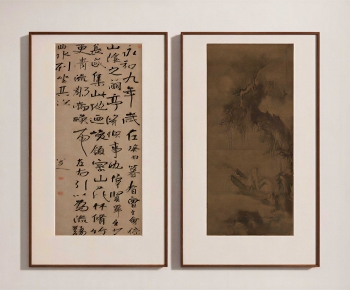 永和九年歲在癸丑暮春會于會稽
山陰之蘭亭脩禊事也群賢畢至少
長咸集此地迺峻領崇山茂林脩竹
更清流激湍暎帶左右引以爲流觴
曲水列坐其次